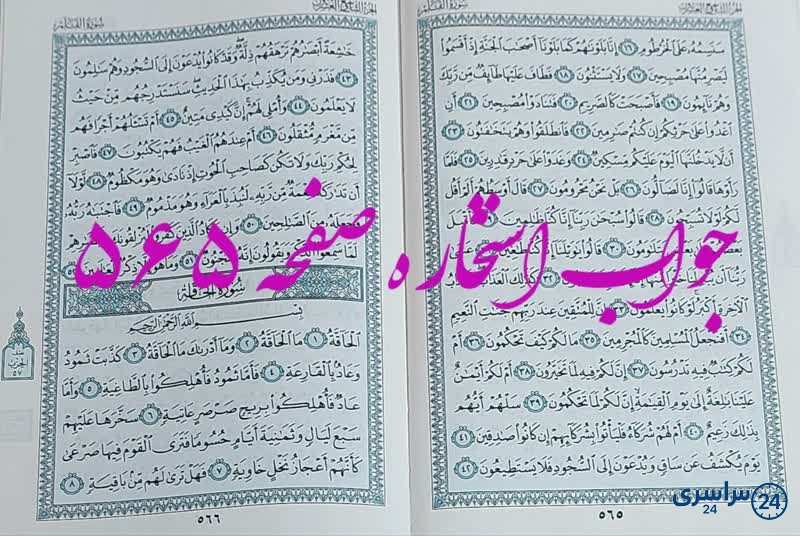 سورة القلم
الجزء التاسع والعشرون
سَنَسِمُهُ عَلَى الْخُرْطُومِ ١٦ إِنَّا بَلَوْنَاهُمْ كَمَا بَلَوْنَا أَصْحَابَ الْجَنَّةِ إِذْ أَقْسَمُوا
لَيَصْرِمُنَّهَا مُصْبِحِينَ ١٧ وَلَا يَسْتَثْنُونَ ١٨ فَطَافَ عَلَيْهَا طَائِفٌ مِّن رَّبِّكَ
وَهُمْ نَائِمُونَ ١٩ فَأَصْبَحَتْ كَالصَّرِيمِ ٢٠ فَتَنَادَوْا مُصْبِحِينَ ٢١ أَنِ
اغْدُوا عَلَى حَرْثِكُمْ إِن كُنتُمْ صَارِمِينَ ٢٢ فَانطَلَقُوا وَهُمْ يَتَخَافَتُونَ ٢٣
أَن لَّا يَدْخُلَنَّهَا الْيَوْمَ عَلَيْكُم مِّسْكِينٌ ٢٤ وَغَدَوْا عَلَى حَرْدٍ قَادِرِينَ ٢٥ فَلَمَّا
رَأَوْهَا قَالُوا إِنَّا لَضَالُّونَ ٢٦ بَلْ نَحْنُ مَحْرُومُونَ ٢٧ قَالَ أَوْسَطُهُمْ أَلَمْ أَقُل
لَّكُمْ لَوْلَا تُسَبِّحُونَ ٢٨ قَالُوا سُبْحَانَ رَبِّنَا إِنَّا كُنَّا ظَالِمِينَ فَأَقْبَلَ
بَعْضُهُمْ يَتَلَاوَمُونَ ٣٠ قَالُوا يَا وَيْلَنَا إِنَّا كُنَّا طَاغِينَ عَسَى
رَبُّنَا أَن ٣٢ كَذَلِكَ الْعَذَابُ
الْآخِرَةِ أَكْبَرُ لَوْ كَانُوا يَعْلَمُونَ ٣٣ إِنَّ لِلْمُتَّقِينَ عِندَ رَبِّهِمْ جَنَّاتِ النَّعِيمِ
٣٤ أَفَنَجْعَلُ الْمُسْلِمِينَ كَالْمُجْرِمِينَ ٣٥ مَا لَكُمْ كَيْفَ تَحْكُمُونَ ٣٦ أَمْ
لَكُمْ كِتَابٌ فِيهِ تَدْرُسُونَ ٣٧ إِنَّ لَكُمْ فِيهِ لَمَا تَخَيَّرُونَ ٣٨ أَمْ لَكُمْ أَيْمَانٌ
عَلَيْنَا بَالِغَةٌ إِلَى يَوْمِ الْقِيَامَةِ إِنَّ لَكُمْ لَمَا تَحْكُمُونَ ٣٩ سَلْهُمْ أَيُّهُم
بِذَلِكَ زَعِيمٌ ٤٠ أَمْ لَهُمْ شُرَكَاءُ فَلْيَأْتُوا بِشُرَكَائِهِمْ إِن كَانُوا صَادِقِينَ ٤١
يَوْمَ يُكْشَفُ عَن سَاقٍ وَيُدْعَوْنَ إِلَى السُّجُودِ فَلَا يَسْتَطِيعُونَ ٤٢
٥٦٥
الجزء التاسع والعشرون
سورة القلم
خَاشِعَةً أَبْصَارُهُمْ تَرْهَقُهُمْ ذِلَّةٌ وَقَدْ كَانُوا يُدْعَوْنَ إِلَى السُّجُودِ وَهُمْ سَالِمُونَ
٤٣ فَذَرْنِي وَمَن يُكَذِّبُ بِهَذَا الْحَدِيثِ سَنَسْتَدْرِجُهُم مِّنْ حَيْثُ
لَا يَعْلَمُونَ ٤٤ وَأُمْلِي لَهُمْ إِنَّ كَيْدِي مَتِينٌ ٤٥ أَمْ تَسْأَلُهُمْ أَجْرًا فَهُم
مِّن مَّغْرَمٍ مُّثْقَلُونَ ٤٦ أَمْ عِندَهُمُ الْغَيْبُ فَهُمْ يَكْتُبُونَ ٤٧ فَاصْبِرْ
لِحُكْمِ رَبِّكَ وَلَا تَكُن كَصَاحِبِ الْحُوتِ إِذْ نَادَى وَهُوَ مَكْظُومٌ ٤٨ لَّوْلَا
أَن تَدَارَكَهُ نِعْمَةٌ مِّن رَّبِّهِ لَنُبِذَ بِالْعَرَاءِ وَهُوَ مَذْمُومٌ ٤٩ فَاجْتَبَاهُ رَبُّهُ
فَجَعَلَهُ مِنَ الصَّالِحِينَ ٥٠ وَإِن يَكَادُ الَّذِينَ كَفَرُوا لَيُزْلِقُونَكَ
لَمَّا سَمِعُوا وَيَقُولُونَ إِنَّهُ لَمَجْنُونٌ ٥١ وَمَا هُوَ إِلَّا ذِكْرٌ لِّلْعَالَمِينَ
سورة الحاقة
بِسْمِ اللَّهِ الرَّحْمَنِ الرَّحِيمِ
الْحَاقَّةُ ١ مَا الْحَاقَّةُ ٢ وَمَا أَدْرَاكَ مَا الْحَاقَّةُ ٣ كَذَّبَتْ ثَمُودُ
وَعَادٌ بِالْقَارِعَةِ ٤ فَأَمَّا ثَمُودُ فَأُهْلِكُوا بِالطَّاغِيَةِ ٥ وَأَمَّا
عَادٌ فَأُهْلِكُوا بِرِيحٍ صَرْصَرٍ عَاتِيَةٍ ٦ سَخَّرَهَا عَلَيْهِمْ
سَبْعَ لَيَالٍ وَثَمَانِيَةَ أَيَّامٍ حُسُومًا فَتَرَى الْقَوْمَ فِيهَا صَرْعَى
كَأَنَّهُمْ أَعْجَازُ نَخْلٍ خَاوِيَةٍ ٧ فَهَلْ تَرَى لَهُم مِّن بَاقِيَةٍ ٨
٥٦٦
جواب استخاره صفحه ۵۶۵
سراسری 24
24